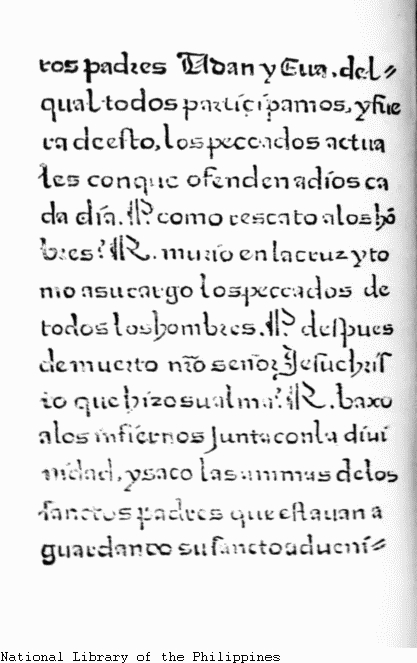 ros padres Adan y Eua, del⸗
qual todos participamos, y fue
ra deesto, los peccados actua
les con que ofenden a dios ca
da día. P. como rescato a los hō
bres? R. murio en la cruz y to
mo a su cargo los peccados de
todos los hombres. P. despues
de muerto nr̄o señor Jesuchris
to que hizo su alma? R. baxo
a los infiernos junta con la diui
nidad, y saco las animas de los
sanctos padres que estauan a
guardando su sancto adueni⸗
National Library of the Philippines